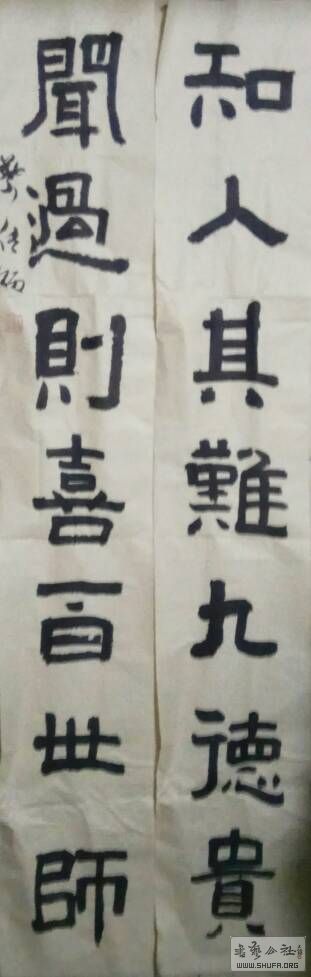 知人其難九德貴
聞過則喜百世師
WWW.SHUFA.ORG